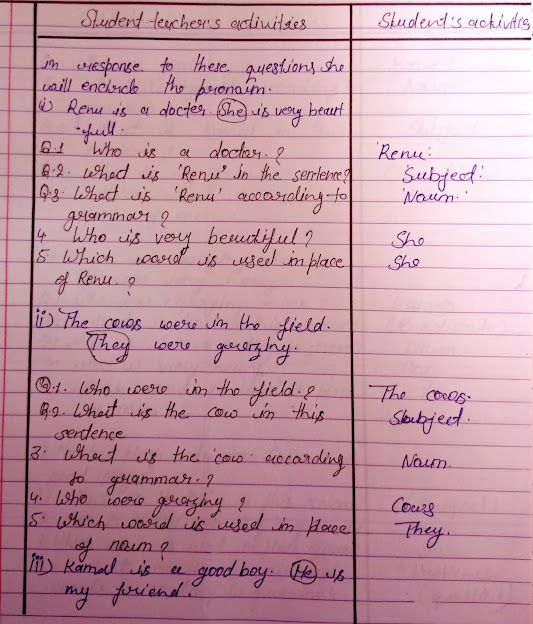 Student teycher's activities
Student's activitis
in response to these questions she
will encircle the pronoun.
(i) Renu is a docter She is very beaut
-full.
Q.1 Who is a doctor.?
'Renu:
Q.2. What is 'Renu' in the sentence?
'Subject:
Q.3. What is 'Renu' according to
'Noun.'
grammar?
4 Who is very beautiful?
She
5 Which word is used in place
She
of Renu.?
ii) The cows were in the field.
They were grazing.
Q.1. Who were in the field.?
The cows.
Q.2. What is the cow in this
Subject.
sentence
3. What is the 'cow' according
Noun.
to grammar.?
4. Who were grazing?
Cows
5. Which word is used in place
They.
of noun?
iii) Kamal is a good boy. He is
my friend.